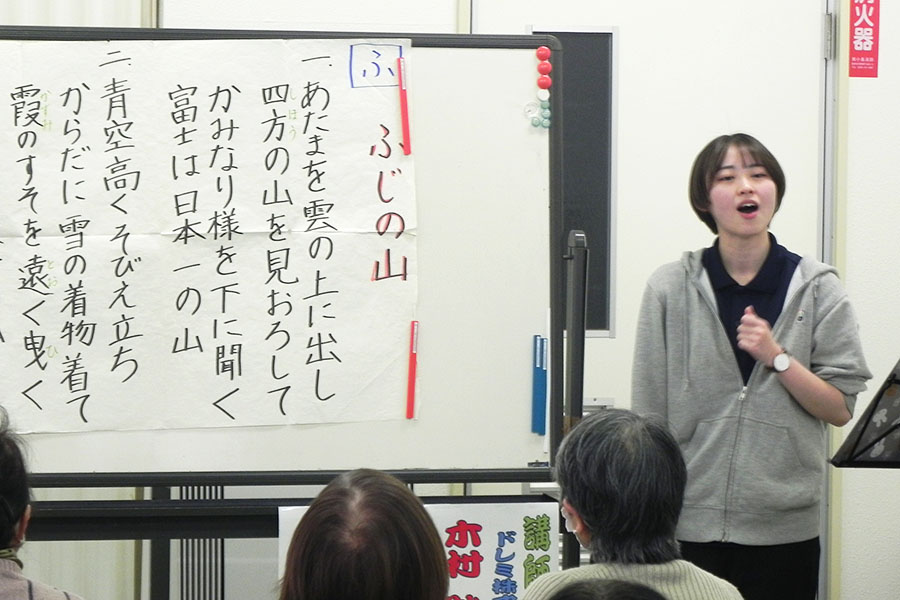 ふ
ふじの山
一.あたまを雲の上に出し
四方の山を見おろして
しほう
かみなり様を下に聞く
富士は日本一の山
二.青空高くそびえ立ち
からだに雪の着物着て
霞のすそを遠く曳く
かすみ
とお
ひ
火器
講師
ドレミ
木村